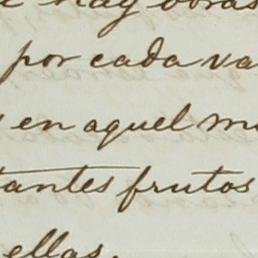 hay obras
por cada va
en aquel m
tantes frutos
ellas.